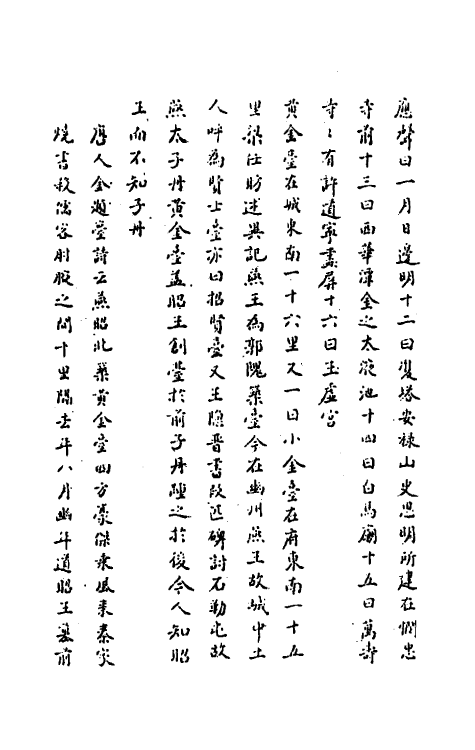 應聲曰一月日邊明十二曰雙塔安祿山史思明所建在憫忠
寺前十三曰西華潭金之太液池十四曰白馬廟十五曰萬壽
寺〻有許道寧畫屏十六曰玉虛宮
黃金臺在城東南一十六里又一曰小金臺在府東南一十五
里梁任昉述異記燕王為郭隗築臺今在幽州燕王故城中土
人呼為賢士臺亦曰招賢臺又王隱晉書段匹磾討石勒屯故
燕太子丹黃金臺蓋昭王創臺於前子丹踵之於後今人知昭
王而不知子丹
唐人金題臺詩云燕昭北築黃金臺四方豪傑乘風來秦家
燒書殺儒客肘腋之間千里隔去年八月幽并道昭王墓前